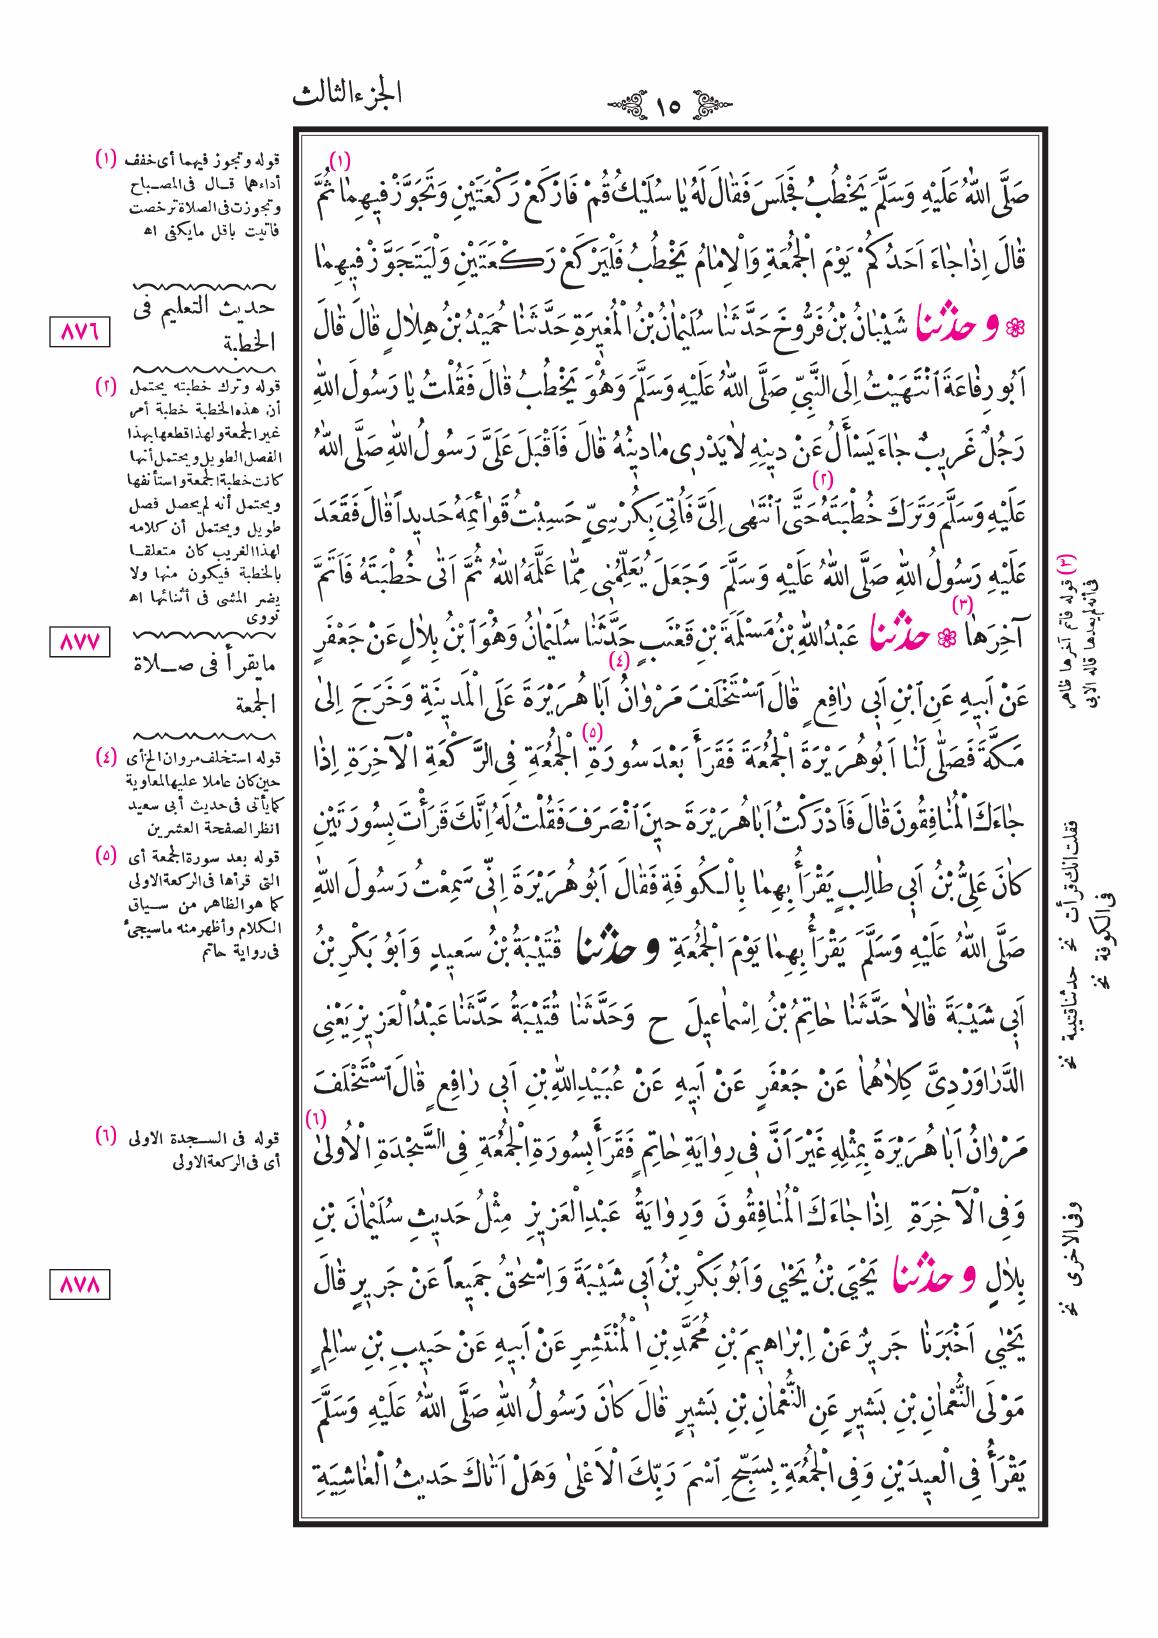 الجزء الثالث
١٥
صَلَّى اللهُ عَلَيْهِ وَسَلَّمَ يَخْطُبُ فَجَلَسَ فَقَالَ لَهُ يَا سُلَيْكُ قُمْ فَارْكَعْ رَكْعَتَيْنِ وَتَجَوَّزْ فِيهِمَا (١) ثُمَّ
قَالَ إِذَا جَاءَ اَحَدُكُمْ يَوْمَ الْجُمُعَةِ وَالْاِمَامُ يَخْطُبُ فَلْيَرْكَعْ رَكْعَتَيْنِ وَلْيَتَجَوَّزْ فِيهِمَا
❁ و حدثنا شَيْبَانُ بْنُ فَرُّوخَ حَدَّثَنَا سُلَيْمَانُ بْنُ الْمُغِيرَةِ حَدَّثَنَا حُمَيْدُ بْنُ هِلَالٍ قَالَ قَالَ
اَبُو رِفَاعَةَ اَنْتَهَيْتُ اِلَى النَّبِىِّ صَلَّى اللهُ عَلَيْهِ وَسَلَّمَ وَهُوَ يَخْطُبُ قَالَ فَقُلْتُ يَا رَسُولَ اللهِ
رَجُلٌ غَرِيبٌ جَاءَ يَسْأَلُ عَنْ دِينِهِ لَا يَدْرِى مَا دِينُهُ قَالَ فَاَقْبَلَ عَلَىَّ رَسُولُ اللهِ صَلَّى اللهُ
عَلَيْهِ وَسَلَّمَ وَتَرَكَ خُطْبَتَهُ (٢) حَتَّى اَنْتَهَى اِلَىَّ فَاُتِىَ بِكُرْسِىٍّ حَسِبْتُ قَوَائِمَهُ حَدِيداً قَالَ فَقَعَدَ
عَلَيْهِ رَسُولُ اللهِ صَلَّى اللهُ عَلَيْهِ وَسَلَّمَ وَجَعَلَ يُعَلِّمُنِى مِمَّا عَلَّمَهُ اللهُ ثُمَّ اَتَى خُطْبَتَهُ فَاَتَمَّ
آخِرَهَا (٣) ❁ حدثنا عَبْدُ اللهِ بْنُ مَسْلَمَةَ بْنِ قَعْنَبٍ حَدَّثَنَا سُلَيْمَانُ وَهُوَ اَبْنُ بِلَالٍ عَنْ جَعْفَرٍ
عَنْ اَبِيهِ عَنِ اَبْنِ اَبِى رَافِعٍ قَالَ اَسْتَخْلَفَ مَرْوَانُ (٤) اَبَا هُرَيْرَةَ عَلَى الْمَدِينَةِ وَخَرَجَ اِلىٰ
مَكَّةَ فَصَلَّى لَنَا اَبُو هُرَيْرَةَ الْجُمُعَةَ فَقَرَأَ بَعْدَ سُورَةِ (٥) الْجُمُعَةِ فِى الرَّكْعَةِ الْآخِرَةِ اِذَا
جَاءَكَ الْمُنَافِقُونَ قَالَ فَاَدْرَكْتُ اَبَا هُرَيْرَةَ حِينَ اَنْصَرَفَ فَقُلْتُ لَهُ اِنَّكَ قَرَأْتَ بِسُورَتَيْنِ
كَانَ عَلِىُّ بْنُ اَبِى طَالِبٍ يَقْرَأُ بِهِمَا بِالْكُوفَةِ فَقَالَ اَبُو هُرَيْرَةَ اِنِّى سَمِعْتُ رَسُولَ اللهِ
صَلَّى اللهُ عَلَيْهِ وَسَلَّمَ يَقْرَأُ بِهِمَا يَوْمَ الْجُمُعَةِ و حدثنا قُتَيْبَةُ بْنُ سَعِيدٍ وَاَبُو بَكْرِ بْنُ
اَبِى شَيْبَةَ قَالَا حَدَّثَنَا حَاتِمُ بْنُ اِسْمَاعِيلَ ح وَحَدَّثَنَا قُتَيْبَةُ حَدَّثَنَا عَبْدُ الْعَزِيزِ يَعْنِى
الدَّرَاوَرْدِىَّ كِلَاهُمَا عَنْ جَعْفَرٍ عَنْ اَبِيهِ عَنْ عُبَيْدِ اللهِ بْنِ اَبِى رَافِعٍ قَالَ اَسْتَخْلَفَ
مَرْوَانُ اَبَا هُرَيْرَةَ بِمِثْلِهِ غَيْرَ اَنَّ فِى رِوَايَةِ حَاتِمٍ فَقَرَأَ بِسُورَةِ الْجُمُعَةِ فِى السَّجْدَةِ الْاُولىٰ (٦)
وَفِى الْآخِرَةِ اِذَا جَاءَكَ الْمُنَافِقُونَ وَرِوَايَةُ عَبْدِ الْعَزِيزِ مِثْلُ حَدِيثِ سُلَيْمَانَ بْنِ
بِلَالٍ و حدثنا يَحْيَى بْنُ يَحْيٰى وَاَبُو بَكْرِ بْنُ اَبِى شَيْبَةَ وَاِسْحٰقُ جَمِيعاً عَنْ جَرِيرٍ قَالَ
يَحْيٰى اَخْبَرَنَا جَرِيرٌ عَنْ اِبْرَاهِيمَ بْنِ مُحَمَّدِ بْنِ الْمُنْتَشِرِ عَنْ اَبِيهِ عَنْ حَبِيبِ بْنِ سَالِمٍ
مَوْلَى النُّعْمَانِ بْنِ بَشِيرٍ عَنِ النُّعْمَانِ بْنِ بَشِيرٍ قَالَ كَانَ رَسُولُ اللهِ صَلَّى اللهُ عَلَيْهِ وَسَلَّمَ
يَقْرَأُ فِى الْعِيدَيْنِ وَفِى الْجُمُعَةِ بِسَبِّحِ اسْمَ رَبِّكَ الْاَعْلىٰ وَهَلْ اَتَاكَ حَدِيثُ الْغَاشِيَةِ
(١) قوله وتجوز فيهما أى خفف
أداءهما قال فى المصباح
وتجوزت فى الصلاة ترخصت
فاتيت باقل مايكفى اه
حديث التعليم فى
الخطبة
٨٧٦
(٢) قوله وترك خطبته يحتمل
أن هذه الخطبة خطبة أمر
غير الجمعة ولهذا قطعها بهذا
الفصل الطويل ويحتمل أنها
كانت خطبة الجمعة واستأنفها
ويحتمل أنه لم يحصل فصل
طويل ويحتمل أن كلامه
لهذا الغريب كان متعلقا
بالخطبة فيكون منها ولا
يضر المشى فى أثنائها اه
نووى
٨٧٧
مايقرأ فى صلاة
الجمعة
(٤) قوله استخلف مروان الخ أى
حين كان عاملا عليها لمعاوية
كما يأتى فى حديث أبى سعيد
انظر الصفحة العشرين
(٥) قوله بعد سورة الجمعة أى
التى قرأها فى الركعة الاولى
كما هو الظاهر من سياق
الكلام وأظهر منه ماسيجىء
فى رواية حاتم
(٦) قوله فى السجدة الاولى
أى فى الركعة الاولى
٨٧٨
(٣) قوله فأتم آخرها ظاهر
فى أنه لم يعدها قاله الابى
فقلت انك قرأت نخ حدثنا قتيبة نخ
فى الكوفة نخ
وفى الاخرى نخ